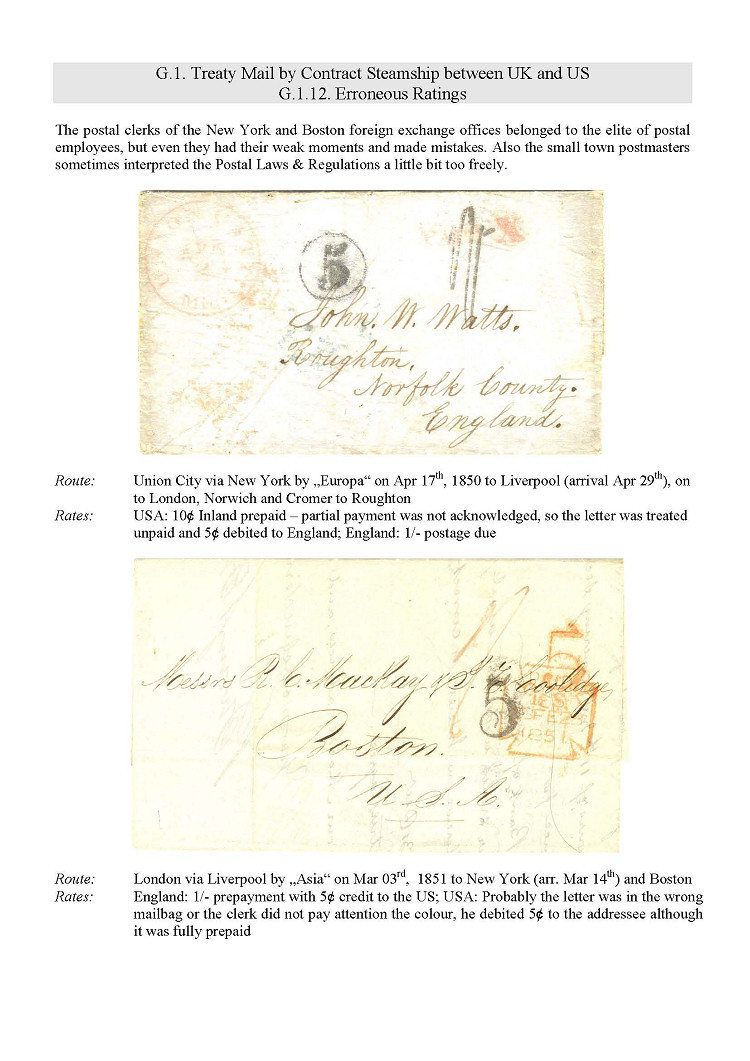 G.1. Treaty Mail by Contract Steamship between UK and US
G.1.12. Erroneous Ratings
The postal clerks of the New York and Boston foreign exchange offices belonged to the elite of postal
employees, but even they had their weak moments and made mistakes. Also the small town postmasters
sometimes interpreted the Postal Laws & Regulations a little bit too freely.
5
John. W. Watts.
Roughton.
Norfolk County.
England.
Route: Union City via New York by „Europa“ on Apr 17th, 1850 to Liverpool (arrival Apr 29th), on
to London, Norwich and Cromer to Roughton
Rates: USA: 10¢ Inland prepaid – partial payment was not acknowledged, so the letter was treated
unpaid and 5¢ debited to England; England: 1/- postage due
Messrs R. C. MacKay & J. T. Coolidge,
5
1851
Boston.
U. S. A.
Route: London via Liverpool by „Asia“ on Mar 03rd, 1851 to New York (arr. Mar 14th) and Boston
Rates: England: 1/- prepayment with 5¢ credit to the US; USA: Probably the letter was in the wrong
mailbag or the clerk did not pay attention the colour, he debited 5¢ to the addressee although
it was fully prepaid